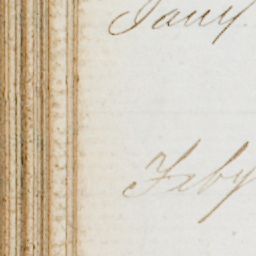 Jany
Feby